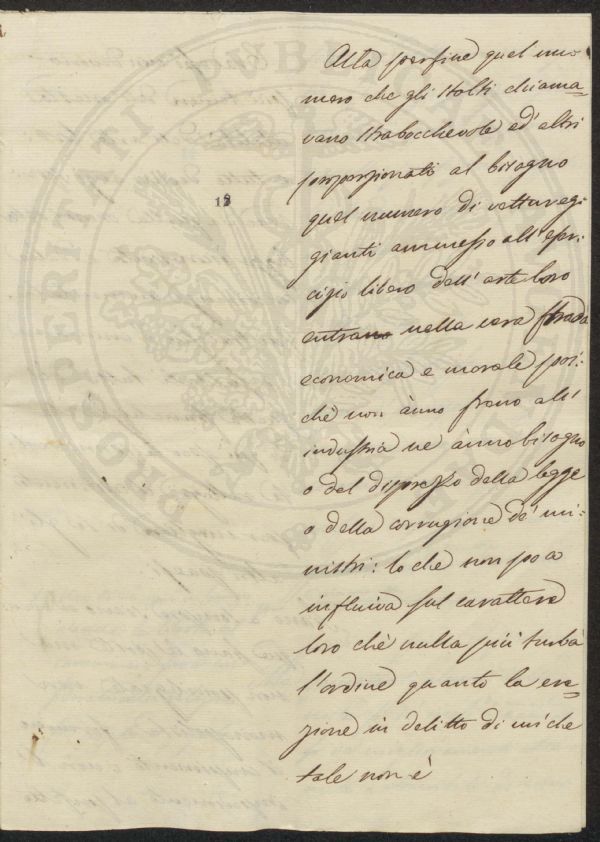 Alla perfine quel nu-
mero che gli stolti chiama=
vano strabocchevole ed' altri
proporzionati al bisogno
quel numero di vettureg=
gianti ammesso all' eser=
cizio libero dell' arte loro
entrano nella vera strada
economica e morale poi:
chè non ànno freno all'
industria ne ànno bisogno
o del disprezzo della legge
o della corruzione de' mi=
nistri: lo che non poa
influiva sul carattere
loro chè nulla più turba
l'ordine quanto la ere=
zione in delitto di ciò che
tale non è
18
PROSPERITATI PUBLICAE